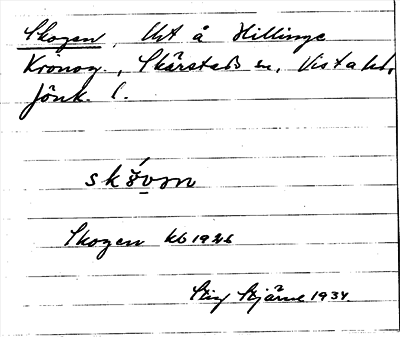 Skogen, Utj å Hillinge
Kronog., Skärstads sn, Vista hd,
Jönk. l.
skó̠vən
Skogen kb 1926
Stig Stjärne 1934.